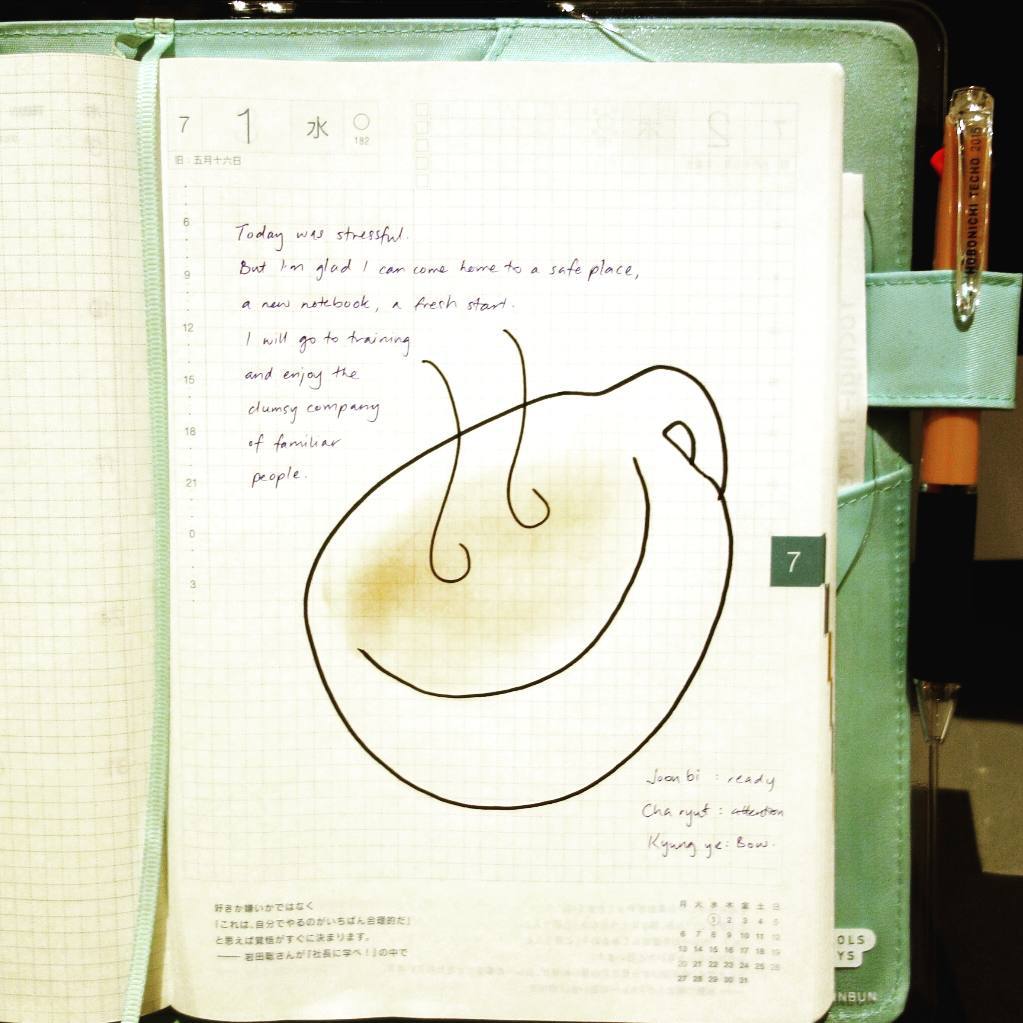 7 1 水
182
旧：五月十六日
6
9
12
15
18
21
0
3
Today was stressful.
But I'm glad I can come home to a safe place,
a new notebook, a fresh start.
I will go to training
and enjoy the
clumsy company
of familiar
people.
7
Joonbi : ready
Cha ryut : attention
Kyung ye: Bow.
好きか嫌いかではなく
「これは、自分でやるのがいちばん合理的だ」
と思えば覚悟がすぐに決まります。
—— 岩田聡さんが『社長に学べ！』の中で
月 火 水 木 金 土 日
1 2 3 4 5
6 7 8 9 10 11 12
13 14 15 16 17 18 19
20 21 22 23 24 25 26
27 28 29 30 31
HOBONICHI TECHO 2015
OLS
YS
INBUN